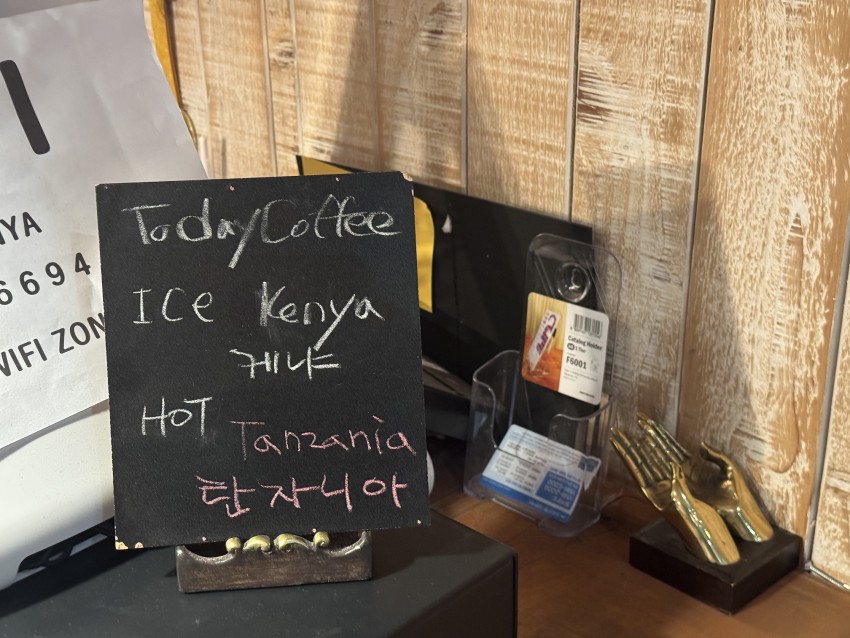 Today Coffee
ICE Kenya
케냐
HOT Tanzania
탄자니아
NYA
6694
WIFI ZON
Catalog Holder
F6001